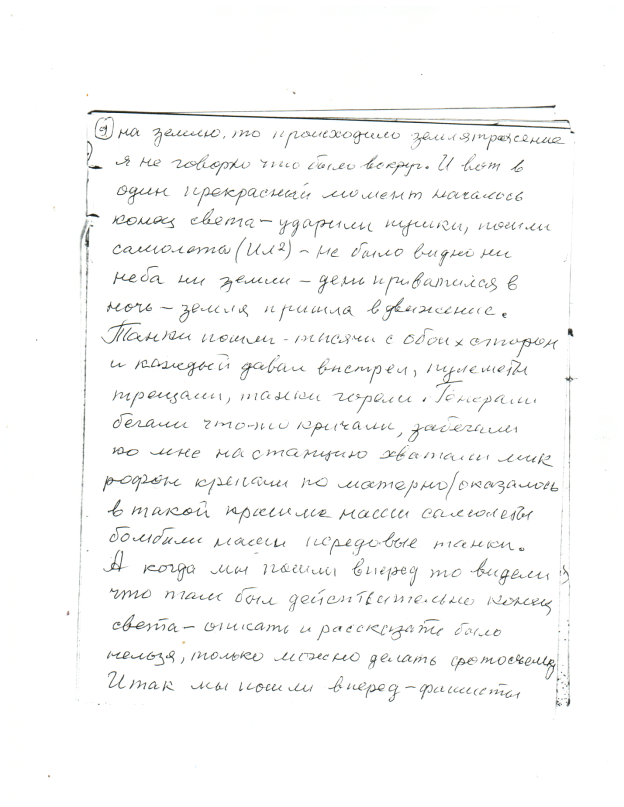 9 на землю, то происходило землятрясение
я не говорю что было вокруг. И вот в
один прекрасный момент началось
конец света – ударили пушки, пошли
самолеты (Ил2) – не было видно ни
неба ни земли – день приватился в
ночь – земля пришла в движение.
Танки пошли – тисячи с обоих сторон
и каждый давал выстрел, пулеметы
трещали, танки горели. Генерали
бегали что-то кричали, забегали
ко мне на станцию хватали мик
рофон кричали по матерно/оказалось
в такой кашише наши самолеты
бомбили наши передовые танки.
А когда мы пошли вперед то видели
что там был действительно конец
света – описать и рассказать было
нельзя, только можно делать фотосъемку
Итак мы пошли вперед – фашисты